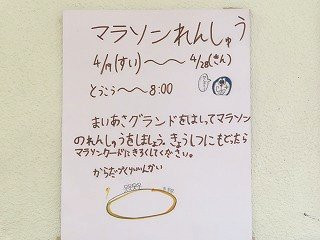 マラソンれんしゅう
4/19(すい)〜〜4/28(きん)
とうこう〜〜8:00
まいあさグランドをはしってマラソン
のれんしゅうをしましょう。きょうしつにもどったら
マラソンカードにきろくしてください。
からだづくりいいんかい